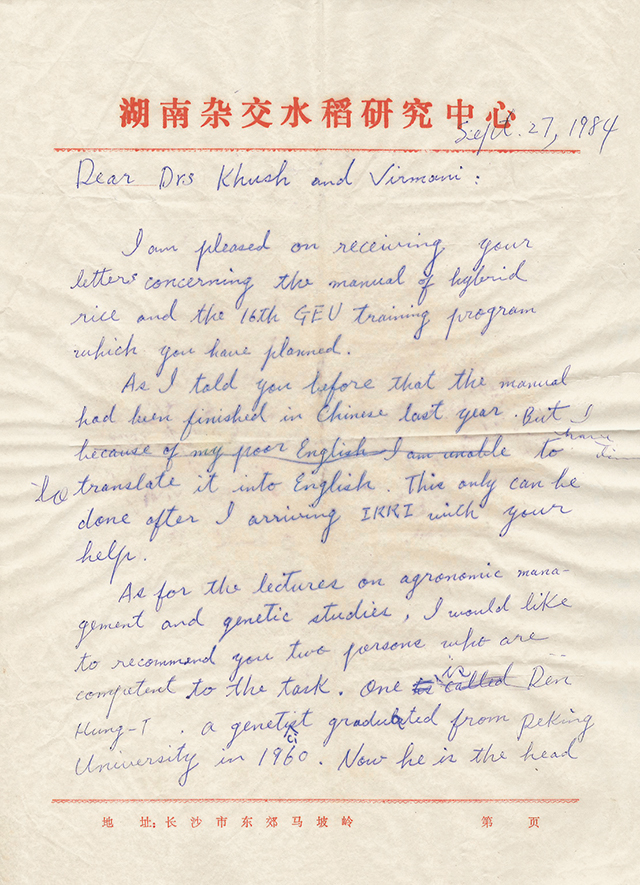 湖南杂交水稻研究中心
Sept. 27, 1984
Dear Drs Khush and Virmani:
I am pleased on receiving your
letters concerning the manual of hybrid
rice and the 16th GEU training program
which you have planned.
As I told you before that the manual
had been finished in Chinese last year. But I
because of my poor English I am unable to
to translate it into English. This only can be
done after I arriving IRRI with your
help.
As for the lectures on agronomic mana-
gement and genetic studies, I would like
to recommend you two persons who are
competent to the task. One is called Den
Hung-T. a genetist graduated from Peking
ci
University in 1960. Now he is the head
地 址:长沙市东郊马坡岭 第 页